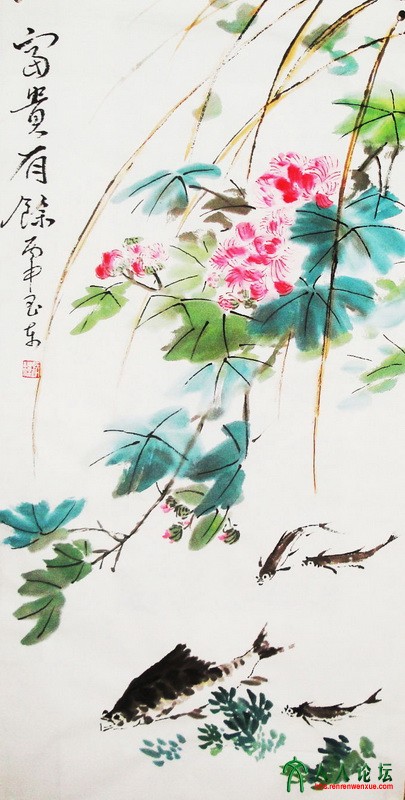 富貴有餘
丙申玉东
人人论坛
bbs.renrenwenxue.com